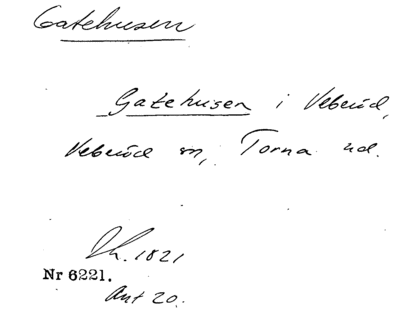 Gatehusen
Gatehusen i Veberöd,
Veberöd sn, Torna hd.
Lh. 1821
Nr 6221.
Avt 20.